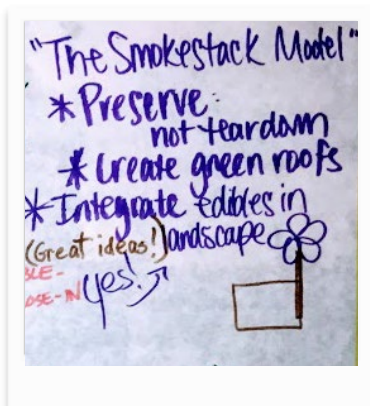 "The Smokestack Model"
* Preserve:
not teardown
* Create green roofs
* Integrate edibles in
(Great ideas!) landscape
yes!